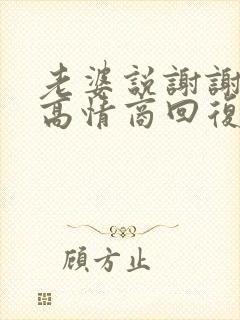 老婆説謝謝
高情商回復
顧方止